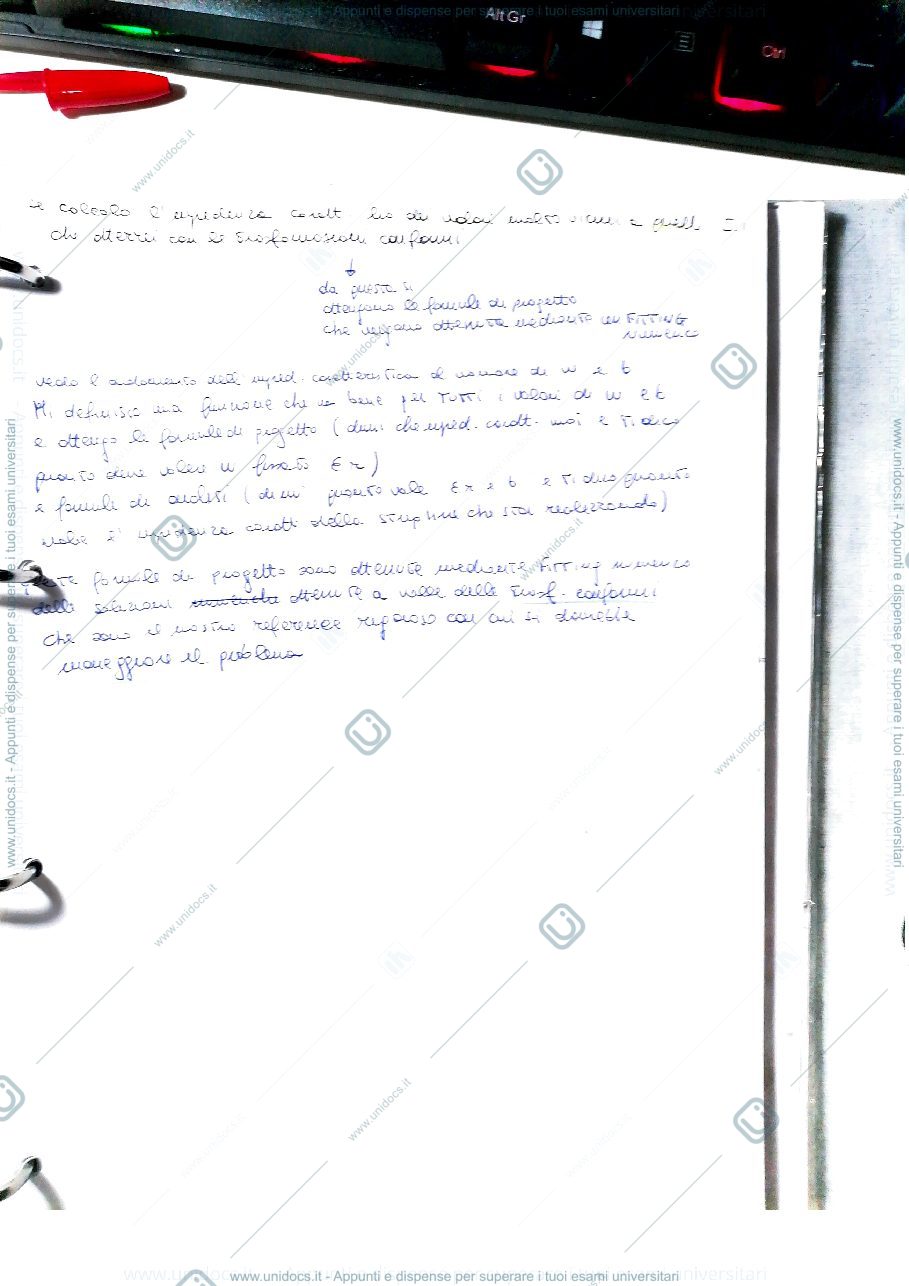 www.unidocs.it - Appunti e dispense per superare i tuoi esami universitari
Alt Gr
Ctrl
se calcolo l'impedenza caratt. ho dei valori molto vicini a quelli
che otterrei con le trasformazioni conformi
da questa si
ottengono le formule di progetto
che vengono ottenute mediante un FITTING
numerico
vedo l'andamento dell'imped. caratteristica al variare di w e b
Mi definisco una funzione che va bene per TUTTI i valori di w e b
e ottengo le formule di progetto (dimmi che imped. caratt. vuoi e ti dico
quanto deve valere w fissato εr)
e formule di analisi (dimmi quanto vale εr e b e ti dico quanto
vale l'impedenza caratt. della stripline che stai realizzando)
queste formule di progetto sono ottenute mediante fitting numerico
delle soluzioni ottenute a valle delle trasf. conformi
che sono il nostro reference rigoroso con cui si dovrebbe
maneggiare il problema
www.unidocs.it
www.unidocs.it
www.unidocs.it
www.unidocs.it
www.unidocs.it
www.unidocs.it
www.unidocs.it - Appunti e dispense per superare i tuoi esami universitari
www.unidocs.it - Appunti e dispense per superare i tuoi esami universitari
www.unidocs.it - Appunti e dispense per superare i tuoi esami universitari